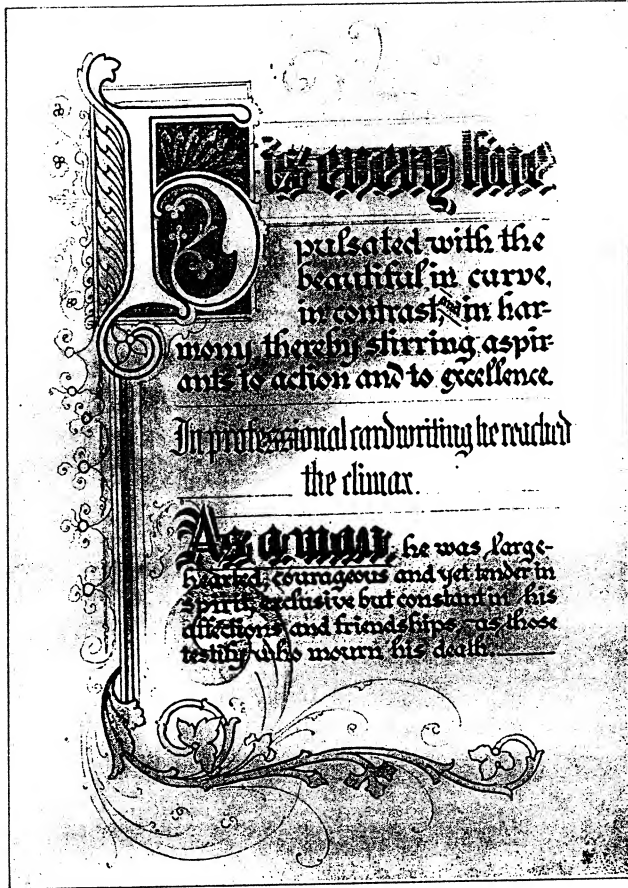 His every line
pulsated with the
beautiful in curve,
in contrast, and in har-
mony, thereby stirring aspir-
ants to action and to excellence.
In professional cardwriting he reached
the climax.
As a man, he was large-
hearted, courageous and yet tender in
spirit, exclusive but constant in his
affections and friendships, as those
testify who mourn his death.